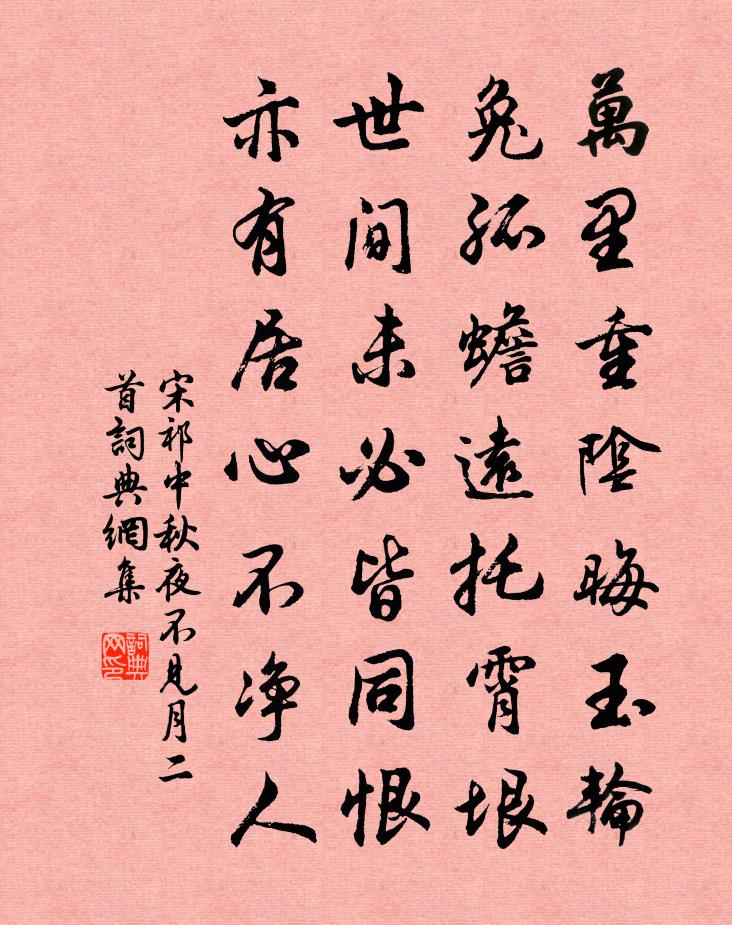 萬里重陰晦玉輪
兔孤蟾遠托霄垠
世间未必皆同恨
亦有居心不净人
宋祁中秋夜不見月二
首詞典網集
詞典
网印